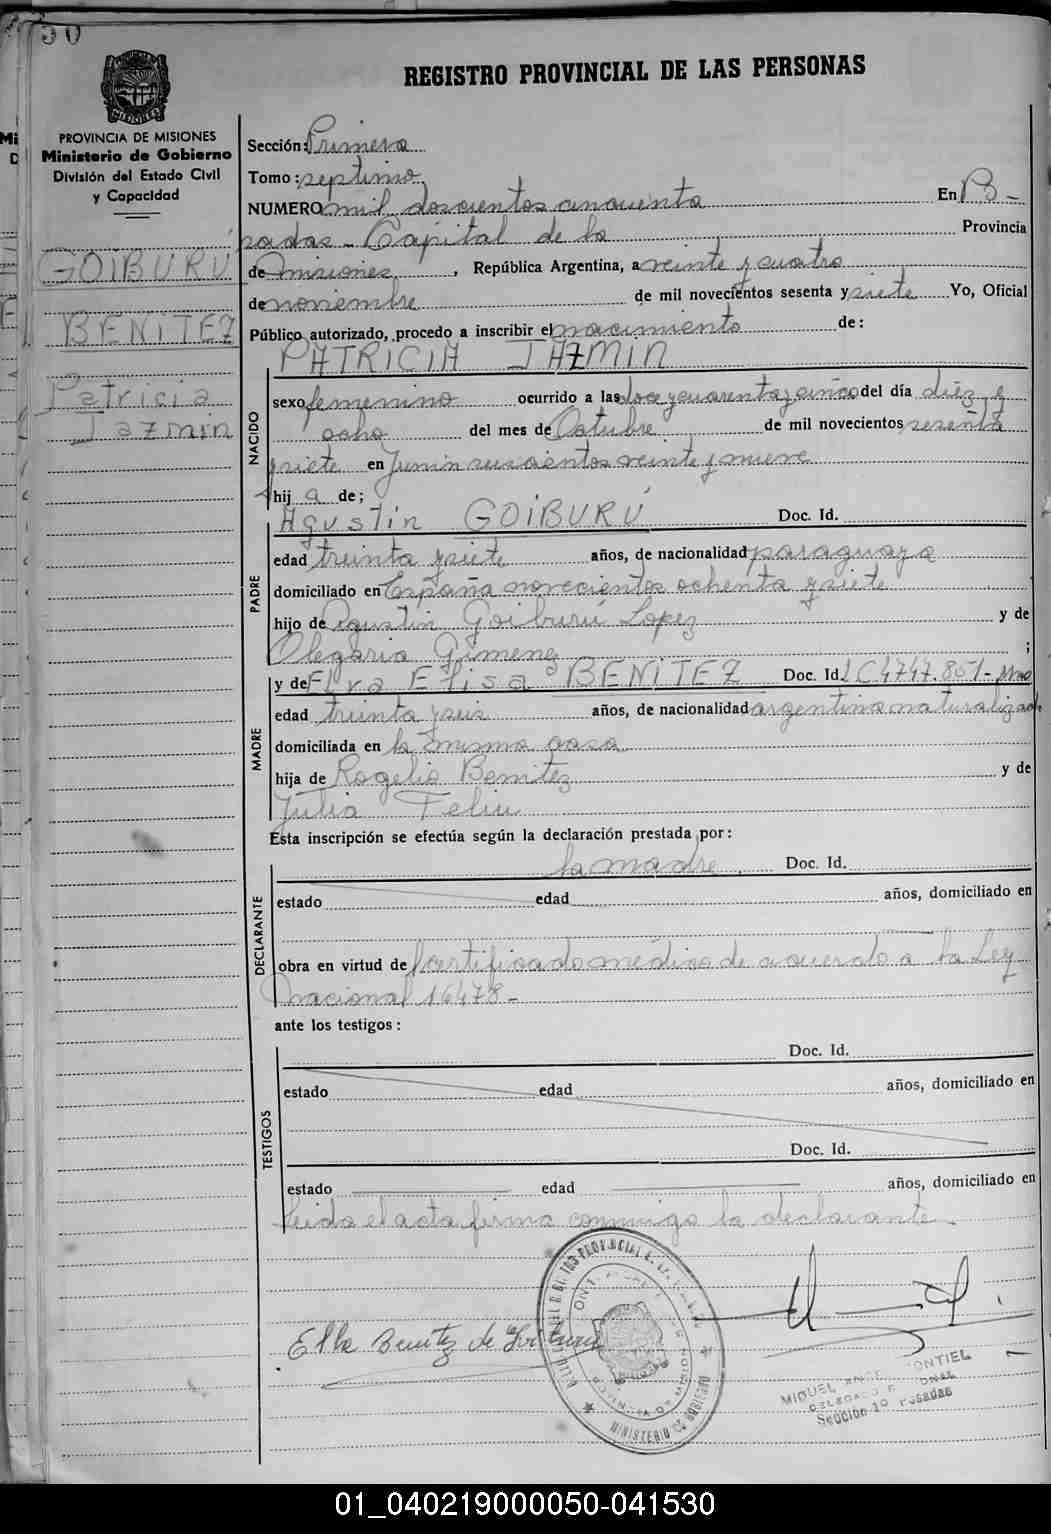 50
REGISTRO PROVINCIAL DE LAS PERSONAS
PROVINCIA DE MISIONES
Ministerio de Gobierno
División del Estado Civil
y Capacidad
GOIBURÚ
BENITEZ
Patricia
Jazmin
Sección: Primera
Tomo: septimo
NUMERO mil doscientos cincuenta En Po-
sadas - Capital de la Provincia
de Misiones, República Argentina, a veinte y cuatro
de noviembre de mil novecientos sesenta y siete Yo, Oficial
Público autorizado, procedo a inscribir el nacimiento de:
PATRICIA JAZMIN
NACIDO
sexo femenino ocurrido a las doce y cuarenta y cinco del día diez y
ocho del mes de Octubre de mil novecientos sesenta
y siete en Junin seiscientos veinte y nueve
hij a de;
Agustin GOIBURÚ Doc. Id.
PADRE
edad treinta y siete años, de nacionalidad paraguaya
domiciliado en España novecientos ochenta y siete
hijo de Agustin Goiburú Lopez y de
Olegaria Gimenez ;
y de Elva Elisa BENITEZ Doc. Id. LC 4747.851-
MADRE
edad treinta y seis años, de nacionalidad argentina naturalizad
domiciliada en la misma casa
hija de Rogelio Benitez y de
Julia Feliu
Esta inscripción se efectúa según la declaración prestada por:
la madre Doc. Id.
DECLARANTE
estado edad años, domiciliado en
obra en virtud de certificado médico de acuerdo a la Ley
nacional 16478-
ante los testigos:
Doc. Id.
TESTIGOS
estado edad años, domiciliado en
Doc. Id.
estado edad años, domiciliado en
Leida el acta firma conmigo la declarante-
Elba Benitez de Goiburú
MIGUEL
Sección 1ª Posadas
MINISTERIO
01_040219000050-041530